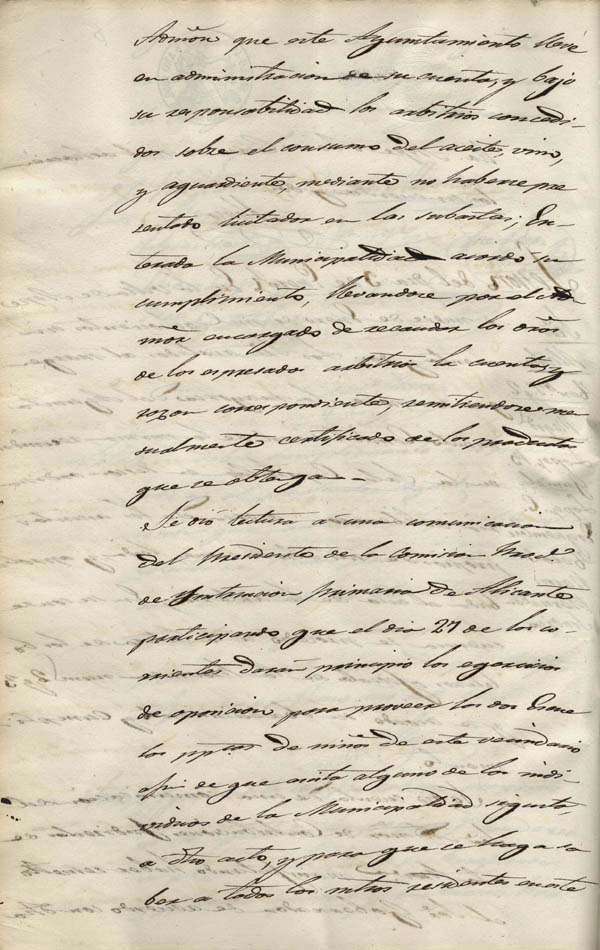 Admōn que este Ayuntamiento lleve
en administracion de su cuenta, y bajo
su responsabilidad los arbitrios concedi-
dos sobre el consumo del aceite, vino,
y aguardiente, mediante no haberse pre
sentado licitador en las subastas; En-
terada la Municipalidad acordó su
cumplimiento, llevandose por el
encargado de recaudar los dros
de los espresados arbitrios la cuenta y
razon correspondiente, remitiendose men
sualmente certificado de los productos
que se obtenga.
Se dió lectura á una comunicacion
del Presidente de la Comision Prov.l
de Instruccion primaria de Alicante
participando que el dia 27 de los co-
rrientes darán principio los egercicios
de oposicion para proveer las dos Escue
las de niños de este vecindario
afin de que asista alguno de los indi
viduos de la Municipalidad
a dho acto, y para que se haga sa
ber a todos los mtros residentes en este